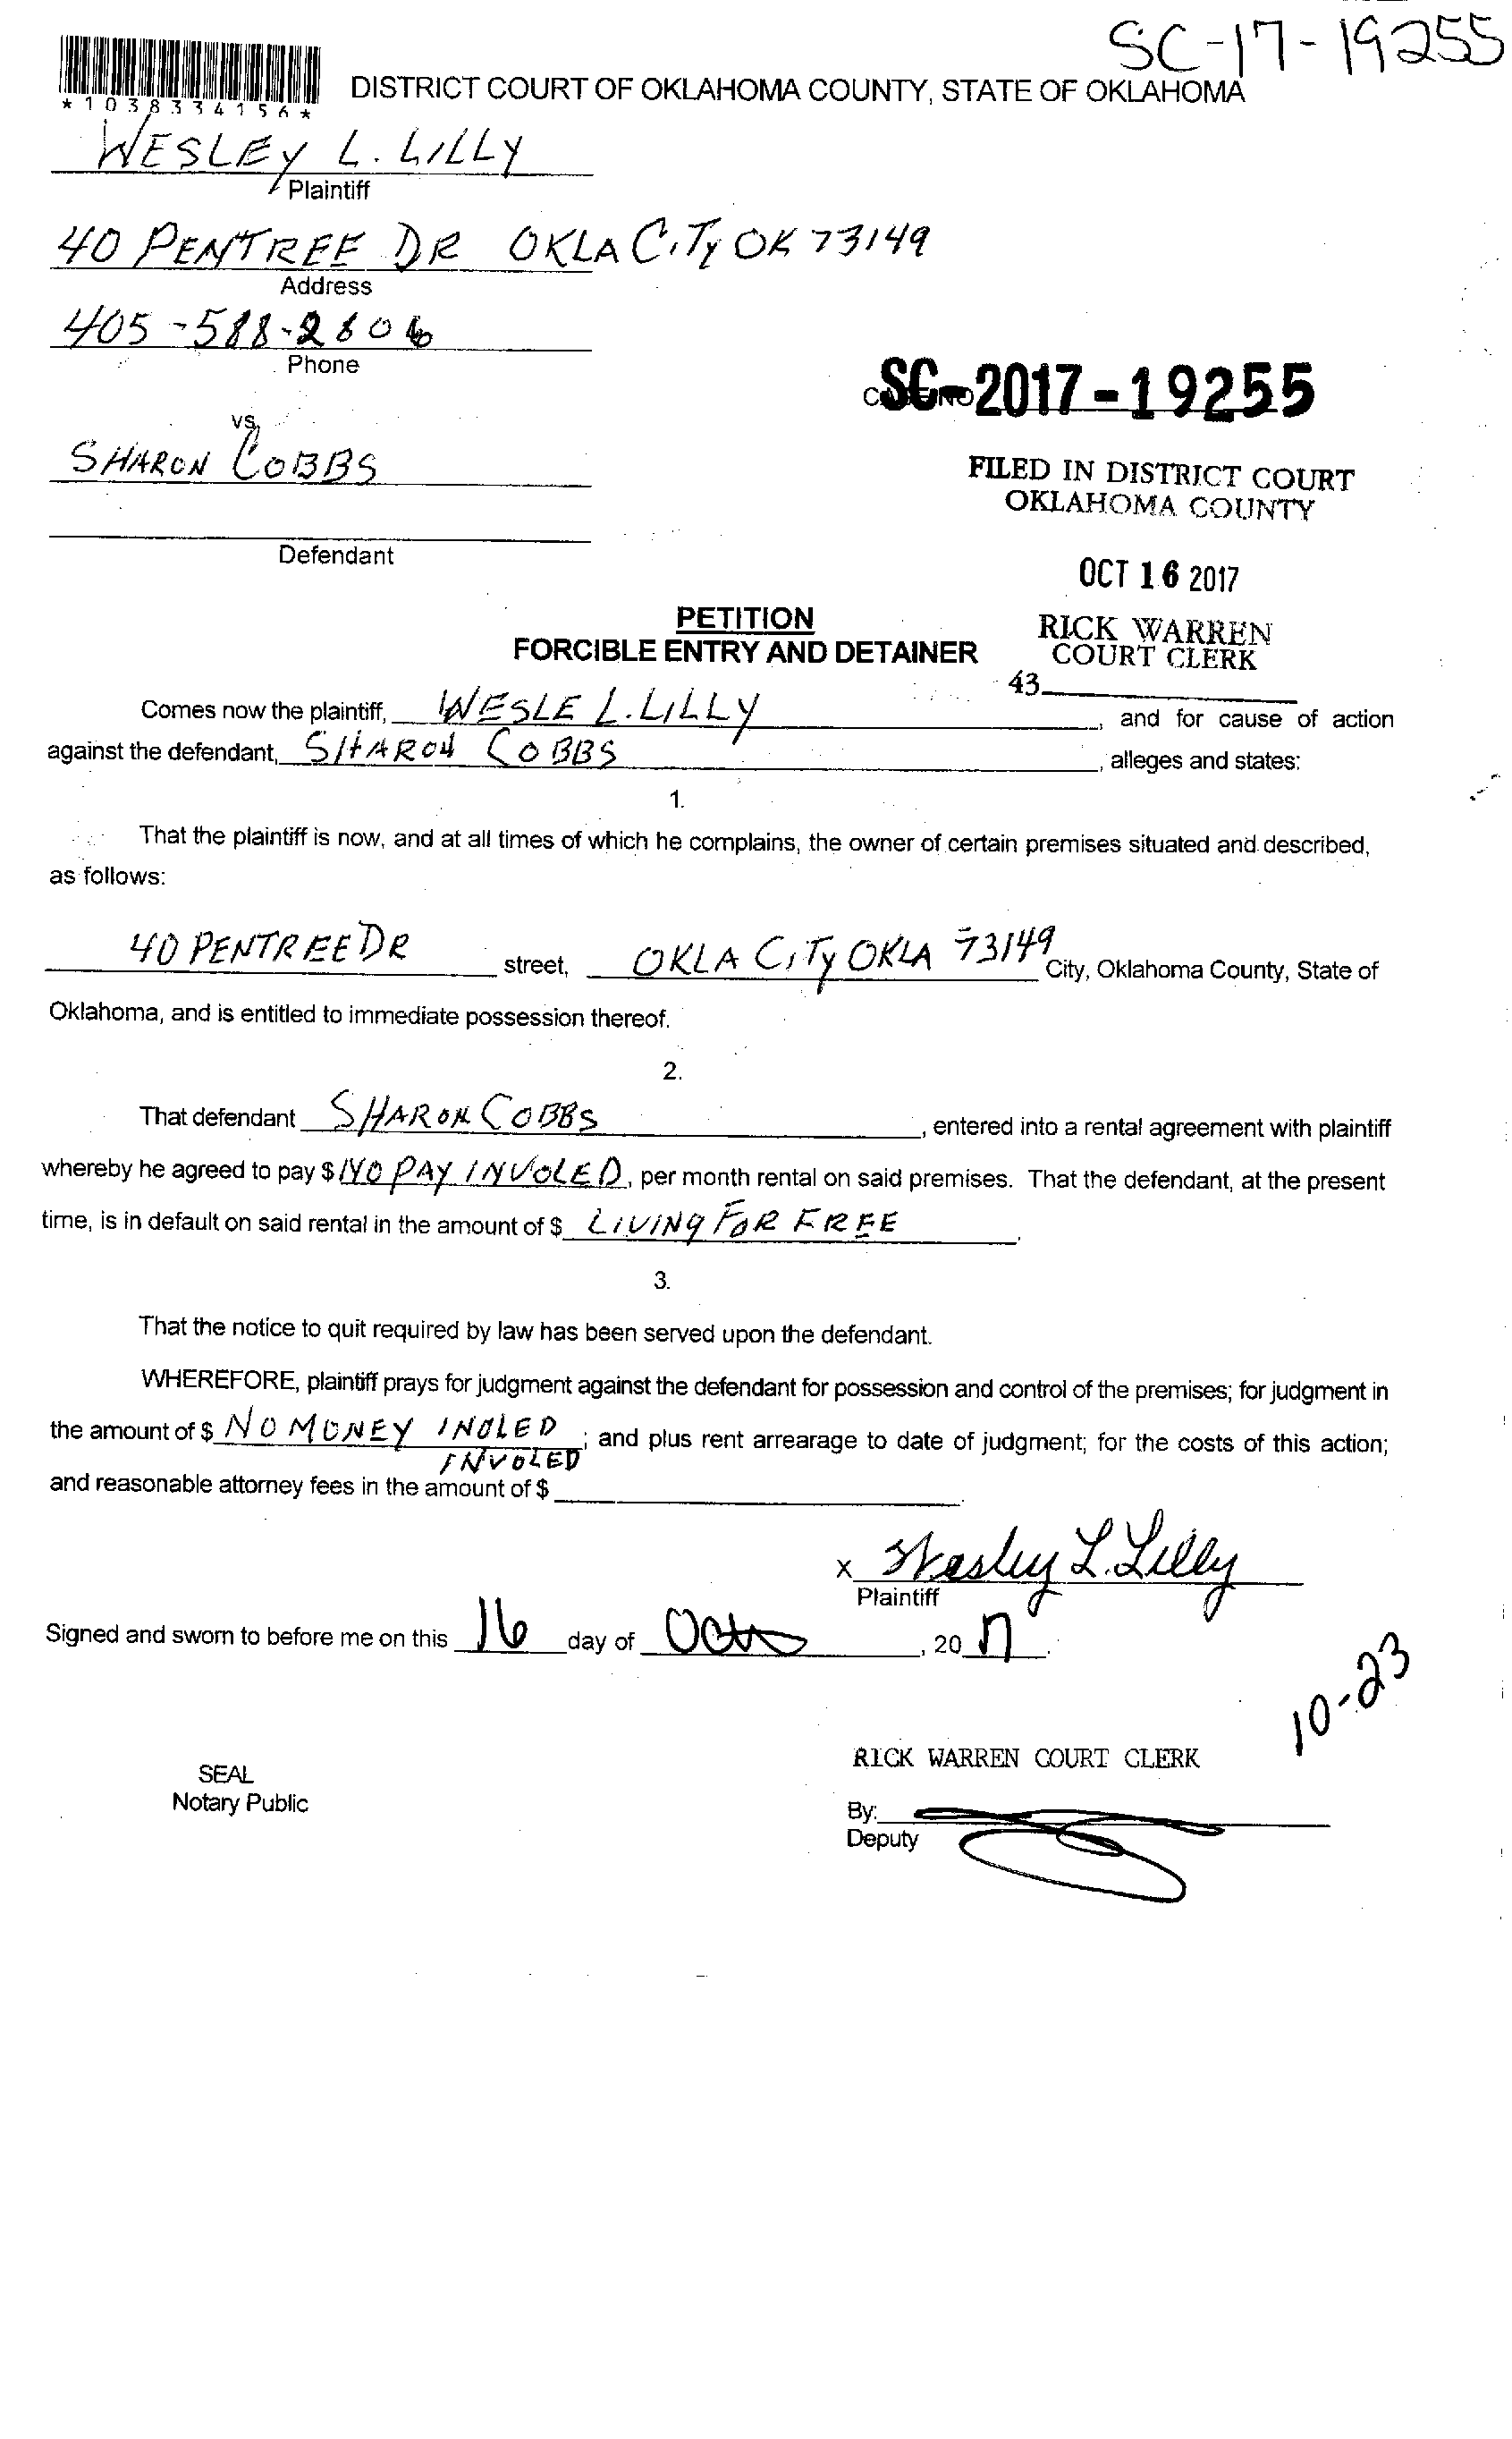 SC-17-19255
*1038334156*
DISTRICT COURT OF OKLAHOMA COUNTY, STATE OF OKLAHOMA
WESLEY L. LILLY
Plaintiff
40 PENTREE DR OKLA CITY OK 73149
Address
405-588-2806
Phone
SC-2017-19255
vs.
SHARON COBBS
FILED IN DISTRICT COURT
OKLAHOMA COUNTY
Defendant
OCT 16 2017
PETITION
FORCIBLE ENTRY AND DETAINER
RICK WARREN
COURT CLERK
43
Comes now the plaintiff, WESLE L. LILLY, and for cause of action
against the defendant, SHARON COBBS, alleges and states:
1.
That the plaintiff is now, and at all times of which he complains, the owner of certain premises situated and described,
as follows:
40 PENTREE DR street, OKLA CITY OKLA 73149 City, Oklahoma County, State of
Oklahoma, and is entitled to immediate possession thereof.
2.
That defendant SHARON COBBS, entered into a rental agreement with plaintiff
whereby he agreed to pay $ NO PAY INVOLED, per month rental on said premises. That the defendant, at the present
time, is in default on said rental in the amount of $ LIVING FOR FREE.
3.
That the notice to quit required by law has been served upon the defendant.
WHEREFORE, plaintiff prays for judgment against the defendant for possession and control of the premises; for judgment in
the amount of $ NO MONEY INOLED; and plus rent arrearage to date of judgment; for the costs of this action;
INVOLED
and reasonable attorney fees in the amount of $
x Wesley L. Lilly
Plaintiff
Signed and sworn to before me on this 16 day of Oct, 2017.
10-23
RICK WARREN COURT CLERK
SEAL
Notary Public
By:
Deputy